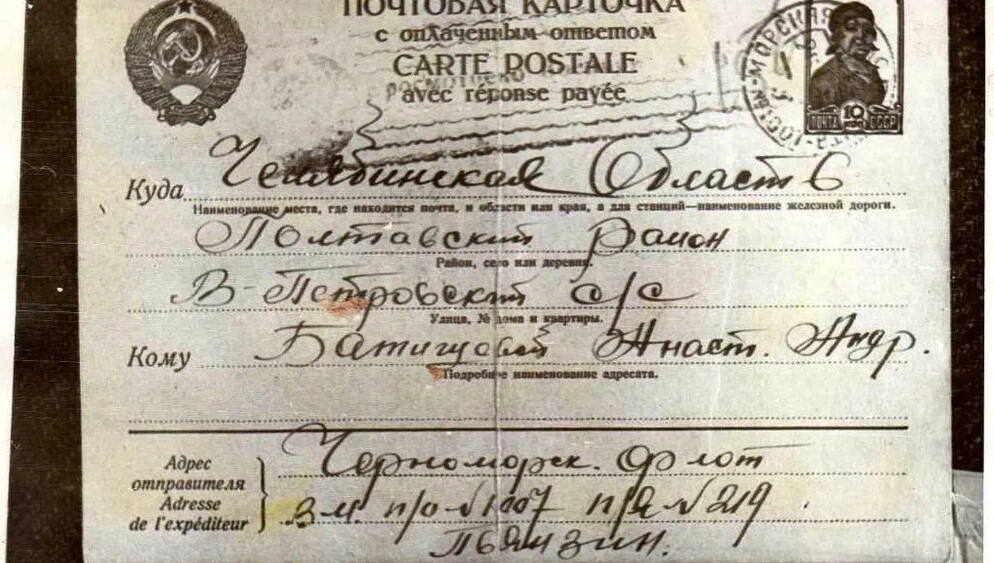 ПОЧТОВАЯ КАРТОЧКА
с оплаченным ответом
CARTE POSTALE
avec réponse payée
ПОЧТА 10 КОП СССР
Куда Челябинская Область
Наименование места, где находится почта, и области или края, а для станций—наименование железной дороги.
Полтавский район
Район, село или деревня.
В-Петровский с/с
Улица, № дома и квартиры.
Кому Батищевой Анаст. Андр.
Подробное наименование адресата.
Адрес отправителя
Adresse de l'expéditeur
Черноморск. флот
п/о №1007 п/я №219
Пьянзин.